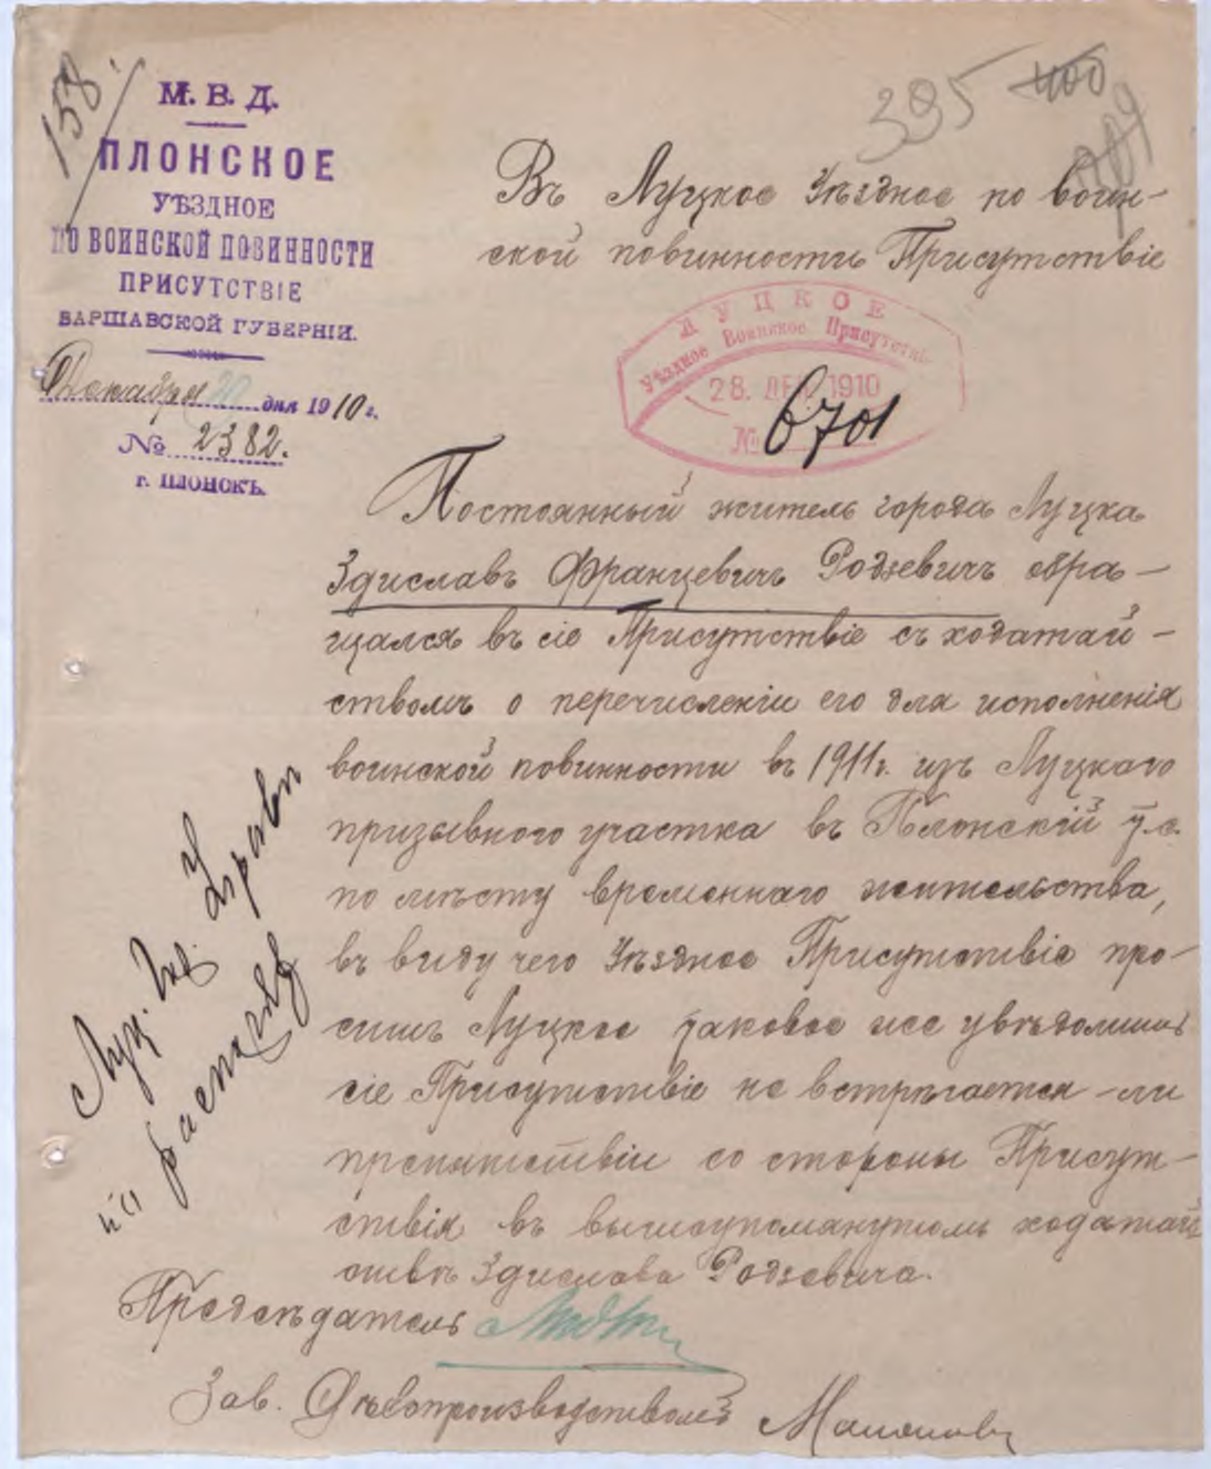 158.
395 400
М. В. Д.
ПЛОНСКОЕ
УѢЗДНОЕ
ПО ВОИНСКОЙ ПОВИННОСТИ
ПРИСУТСТВІЕ
ВАРШАВСКОЙ ГУБЕРНІИ.
Декабря 20 дня 1910 г.
№ 2382.
г. ПЛОНСКЪ.
Въ Луцкое Уѣздное по воин-
ской повинности Присутствіе
ЛУЦКОЕ
Уѣздное Воинское Присутствіе
28. ДЕК. 1910
№ 6701
Постоянный житель города Луцка
Здиславъ Францевичъ Родзевичъ обра-
щался въ сіе Присутствіе съ ходатай-
ствомъ о перечисленіи его для исполненія
воинской повинности въ 1911 г. изъ Луцкаго
призывного участка въ Плонскій у.с.
по мѣсту временнаго жительства,
въ виду чего Уѣздное Присутствіе про-
ситъ Луцкое таковое же увѣдомить
сіе Присутствіе не встрѣчается-ли
препятствій со стороны Присут-
ствія въ вышеупомянутомъ ходатай
ствѣ Здислава Родзевича.
Луц. Управы
Предсѣдатель
Зав. Дѣлопроизводствомъ